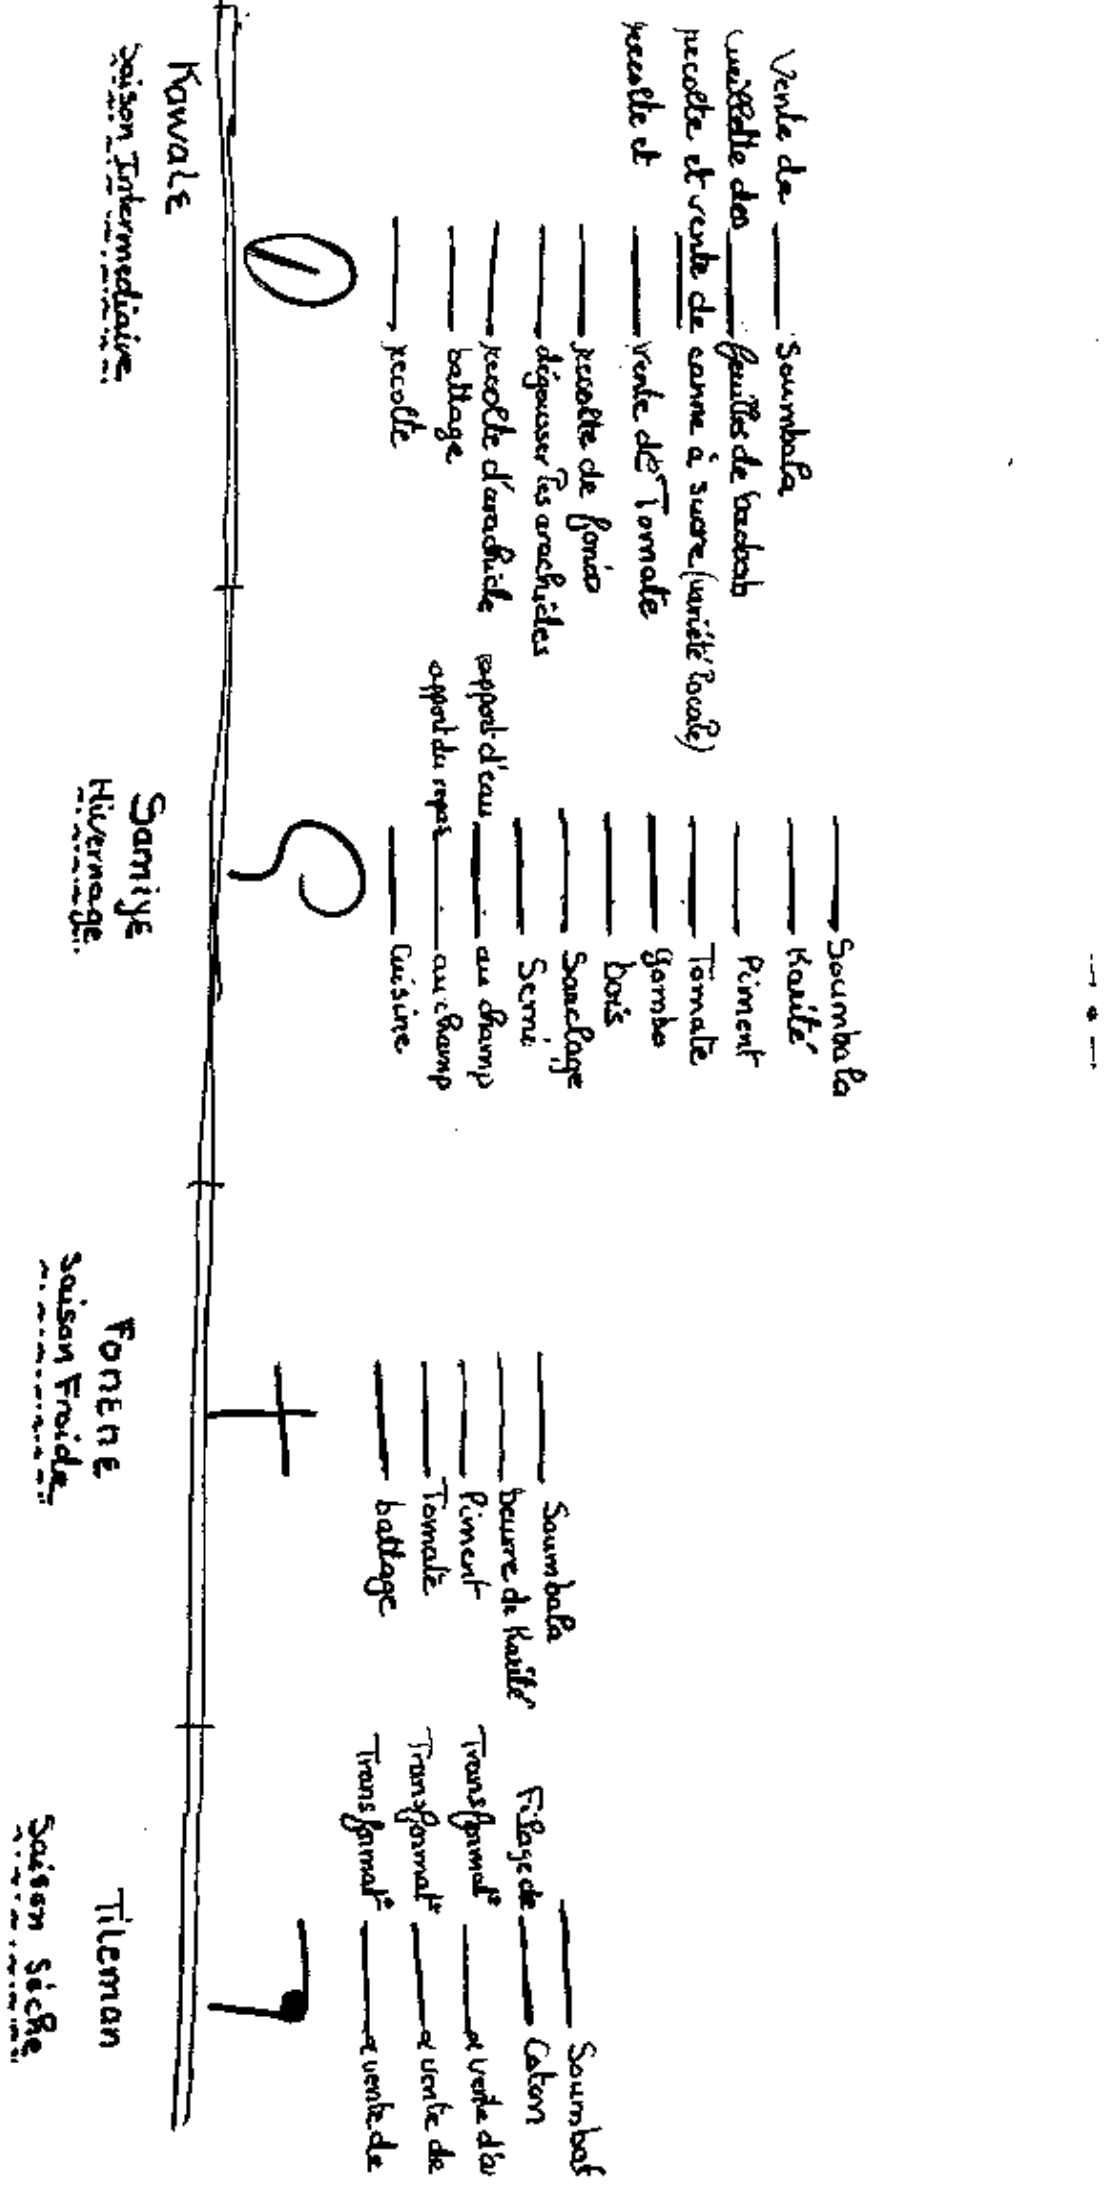 Vente de Soumbala
cueillette des feuilles de baobab
recolte et vente de canne à sucre (variété locale)
recolte et vente de Tomate
recolte de fonio
dégousser les arachides
recolte d'arachide
battage
recolte
Kawalɛ
Saison Intermediaire
Soumbala
Karité
Piment
Tomate
gombo
bois
Sarclage
Semi
apport d'eau au champ
apport du repas au champ
Cuisine
Samiyɛ
Hivernage
Soumbala
beurre de Karité
Piment
Tomate
battage
Fonɛnɛ
Saison Froide
Soumbal
Filage de Coton
Transformat° et vente d'a
Transformat° et vente de
Transformat° et vente de
Tileman
Saison Séche